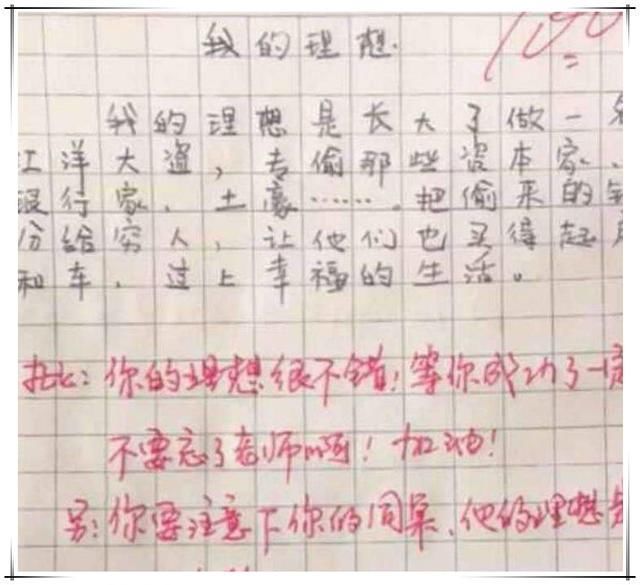 我的理想.
100
我的理想是长大了做一名
江洋大盗，专偷那些资本家、
银行家、土豪……。把偷来的钱
分给穷人，让他们也买得起房
和车，过上幸福的生活。
批：你的理想很不错！等你成功了一定
不要忘了老师啊！加油！
另：你要注意下你的同桌，他的理想是